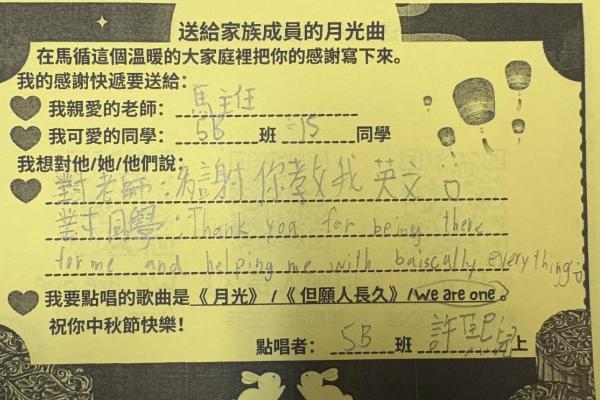 送給家族成員的月光曲
在馬循這個溫暖的大家庭裡把你的感謝寫下來。
我的感謝快遞要送給：
我親愛的老師：馬主任
我可愛的同學：5B班 15同學
我想對他/她/他們說：
對老師：謝你教我英文。
對同學：Thank you for being there
for me and helping me with baiscally everything
我要點唱的歌曲是《月光》/《但願人長久》/We are one。
祝你中秋節快樂！
點唱者：5B班 許 上